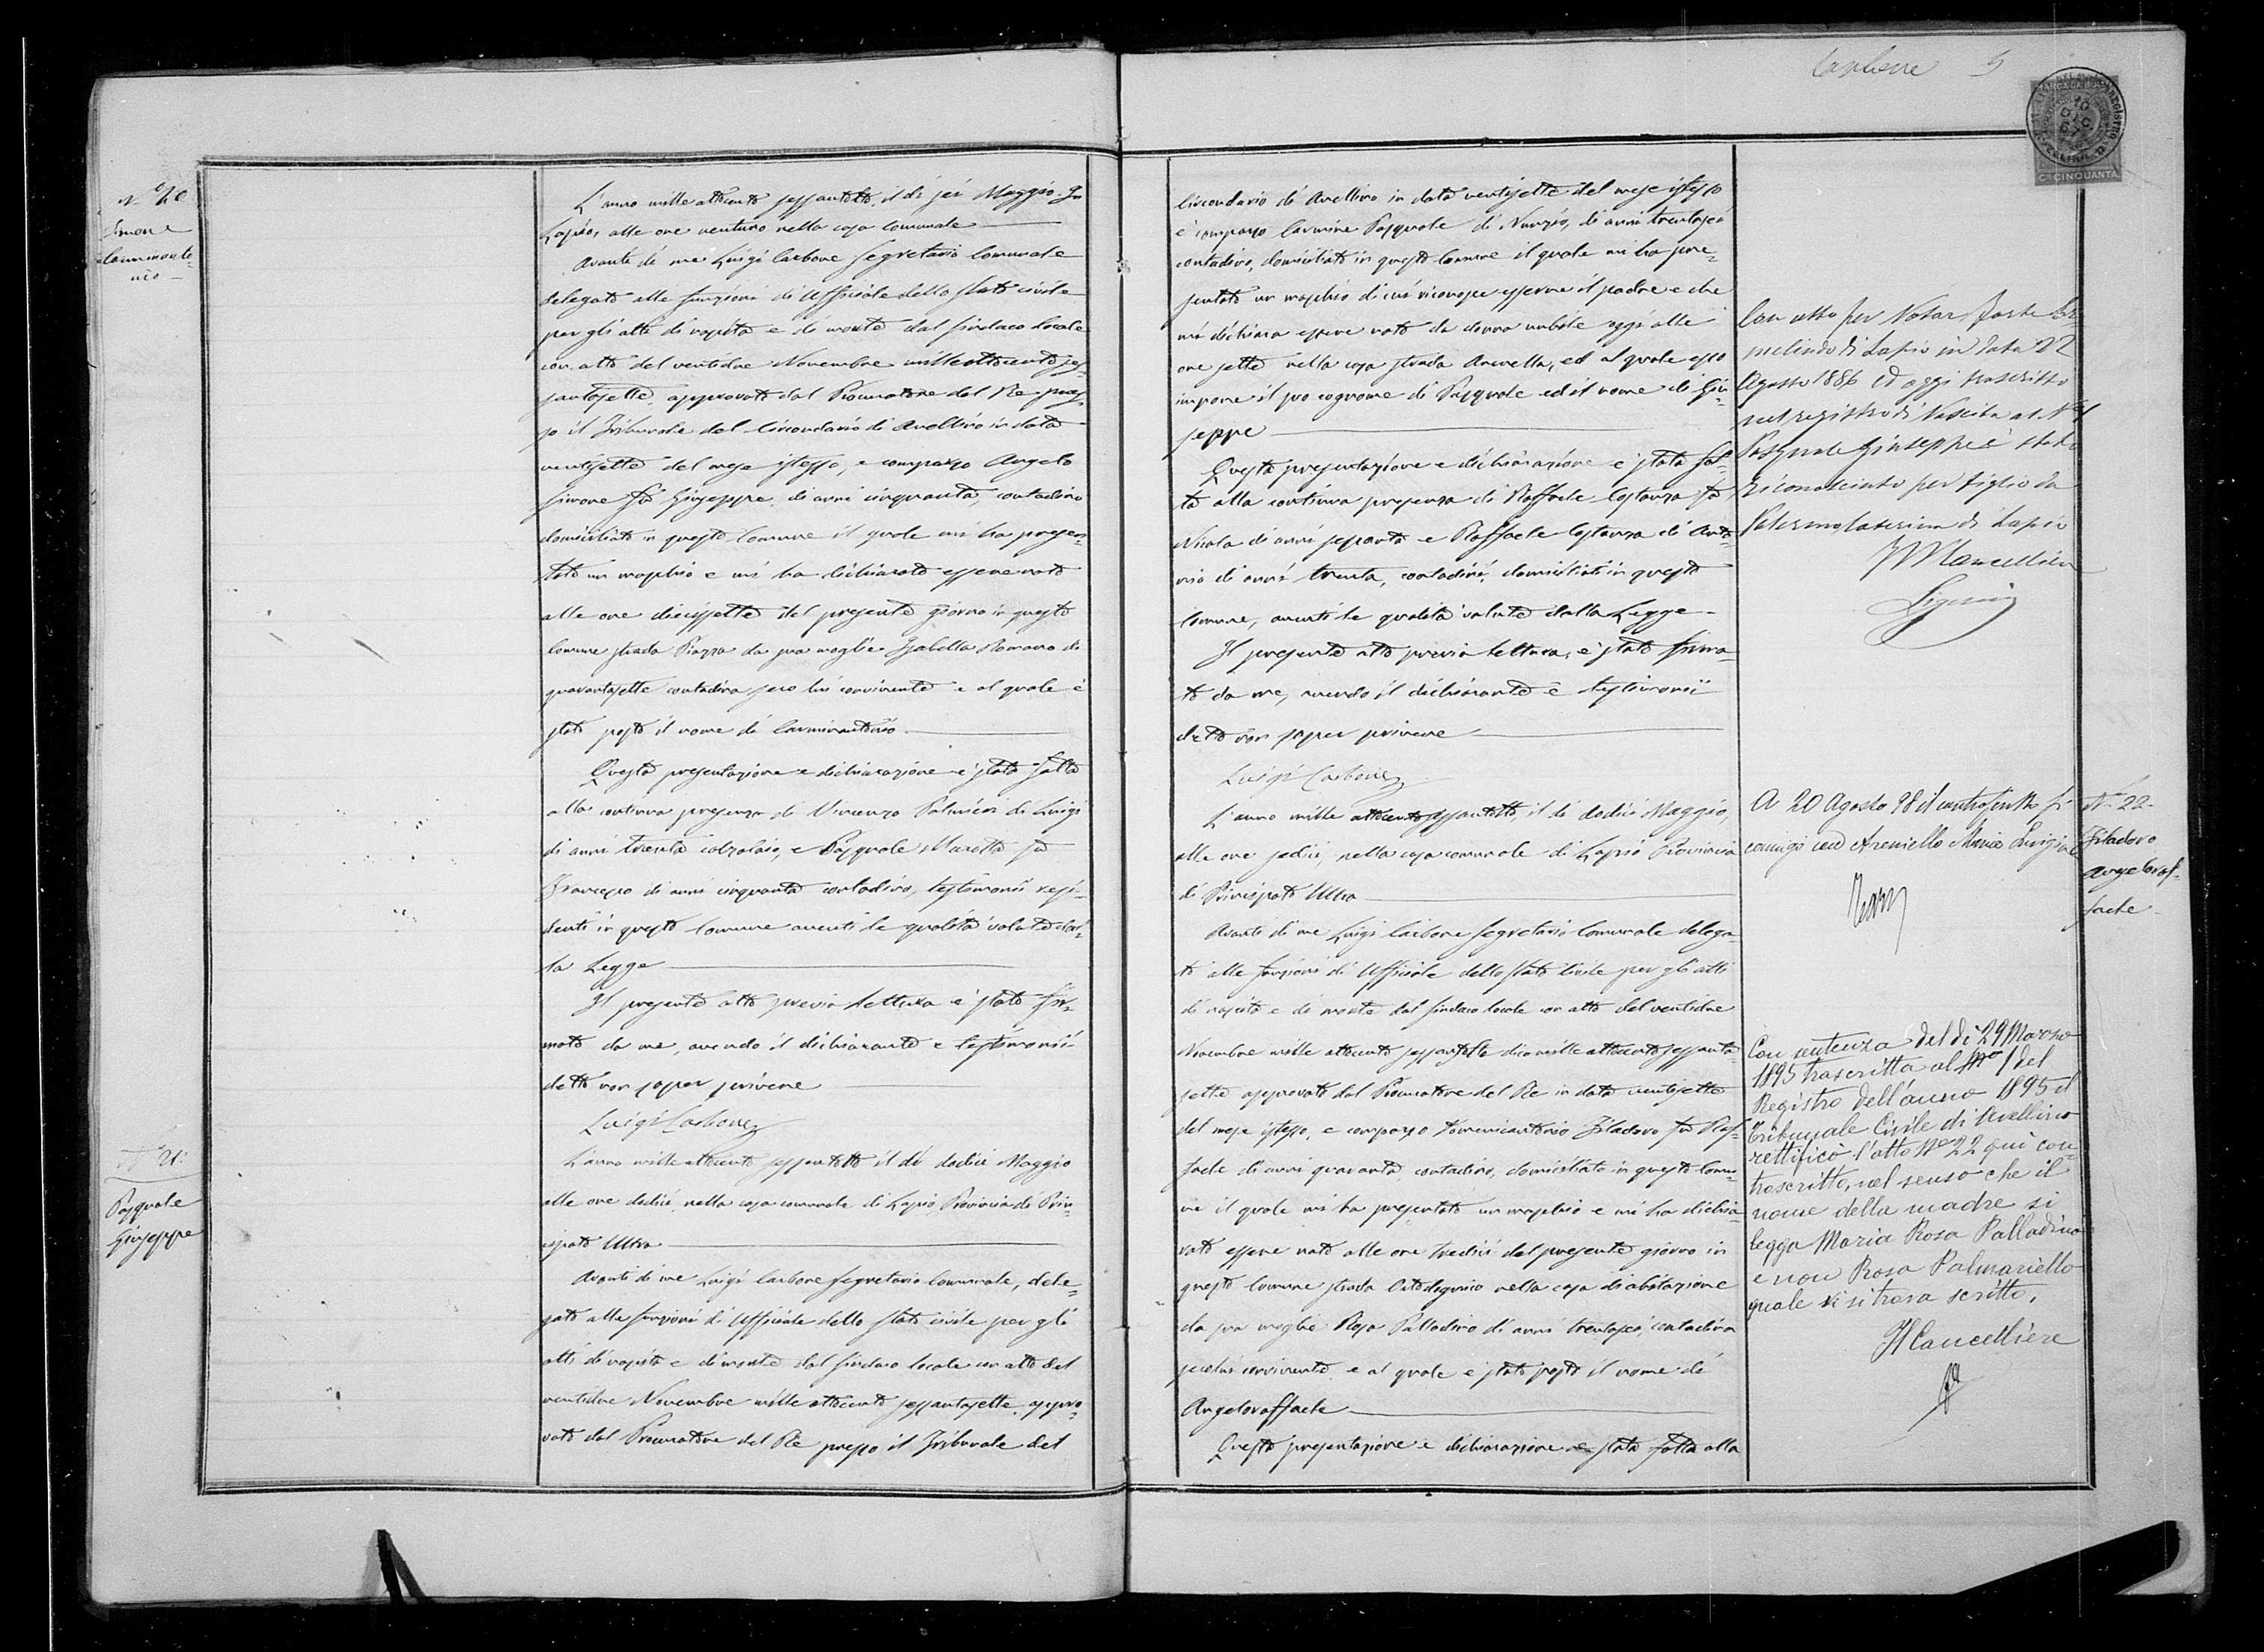 Carbone 5
10 DIC 67
Cs CINQUANTA
N.° 20
Simone
Carminanto-
nio
L'anno mille ottocento sessantotto, il dì sei Maggio. In
Lapio, alle ore ventuno nella casa comunale
Avanti di me Luigi Carbone Segretario Comunale
delegato alle funzioni di Uffiziale dello Stato civile
per gli atti di nascita e di morte dal Sindaco locale
con atto del ventidue Novembre mille ottocento ses-
santasette, approvato dal Procuratore del Re pres-
so il Tribunale del Circondario di Avellino in data
ventisette del mese istesso, è comparso Angelo
Simone fu Giuseppe di anni cinquanta, contadino
domiciliato in questo Comune il quale mi ha presen-
tato un maschio e mi ha dichiarato essere nato
alle ore diecissette del presente giorno in questo
Comune strada Piazza da sua moglie Isabella Romano di
quarantasette contadina seco lui convivente e al quale è
stato posto il nome di Carminantonio
Questa presentazione e dichiarazione è stata fatta
alla continua presenza di Vincenzo di Luigi
di anni trenta calzolaio, e Pasquale Marotta fu
Francesco di anni cinquanta contadino, testimonii resi-
denti in questo Comune aventi le qualità volute dal-
la Legge
Il presente atto previa lettura è stato fir-
mato da me, avendo il dichiarante e testimonii
detto non saper scrivere
Luigi Carbone
N.° 21.
Pasquale
Giuseppe
L'anno mille ottocento sessantotto il dì dodici Maggio
alle ore dodici, nella casa comunale di Lapio, Provincia di Prin-
cipato Ultra
Avanti di me Luigi Carbone Segretario Comunale, dele-
gato alle funzioni di Uffiziale dello Stato civile per gli
atti di nascita e di morte dal Sindaco locale con atto del
ventidue Novembre mille ottocento sessantasette, appro-
vato dal Procuratore del Re presso il Tribunale del
Circondario di Avellino in data ventisette del mese istesso
è comparso Carmine Pasquale di Nunzio, di anni trentasei
contadino, domiciliato in questo Comune il quale mi ha pre-
sentato un maschio di cui riconosce esserne il padre e che
mi dichiara essere nato da donna nubile oggi alle
ore sette nella casa strada, ed al quale esso
impone il suo cognome di Pasquale ed il nome di Giu-
seppe
Questa presentazione e dichiarazione è stata fat-
ta alla continua presenza di Raffaele Costanza fu
Nicola di anni sessanta e Raffaele Costanza di Anto-
nio di anni trenta, contadini, domiciliati in questo
Comune, aventi le qualità volute dalla Legge
Il presente atto previa lettura, è stato firma-
to da me, avendo il dichiarante e testimonii
detto non saper scrivere
Luigi Carbone
Con atto per Notar Forte Er-
melindo di Lapio in data 22
Agosto 1886 ed oggi trascritto
nel registro di Nascita al N° 1
Pasquale Giuseppe è stato
riconosciuto per figlio da
Palermo Caterina di Lapio
Il Cancelliere
L'anno mille ottocento sessantotto, il dì dodici Maggio,
alle ore sedici, nella casa comunale di Lapio Provincia
di Principato Ultra
Avanti di me Luigi Carbone Segretario Comunale delega-
to alle funzioni di Uffiziale dello Stato Civile per gli atti
di nascita e di morte dal Sindaco locale con atto del ventidue
Novembre mille ottocento sessantasette dico mille ottocento sessanta-
sette approvato dal Procuratore del Re in data ventisette
del mese istesso, è comparso Domenicantonio Filadoro fu Raf-
faele di anni quaranta, contadino, domiciliato in questo Comu-
ne il quale mi ha presentato un maschio e mi ha dichia-
rato essere nato alle ore tredici del presente giorno in
questo Comune strada nella casa di abitazione
da sua moglie Rosa Palladino di anni trentasei, contadina
seco lui convivente e al quale è stato posto il nome di
Angeloraffaele
Questa presentazione e dichiarazione è stata fatta alla
A 20 Agosto 98 il controscritto si
coniugò con Areniello Maria Luigia
N.° 22.
Filadoro
Angeloraf-
faele
Con sentenza del dì 29 Marzo
1895 trascritta al No 1 del
Registro dell'anno 1895 il
Tribunale Civile di Avellino
rettificò l'atto No 22 qui con-
troscritto, nel senso che il
nome della madre si
legga Maria Rosa Palladino
e non Rosa Palmariello
quale vi si trova scritto.
Il Cancelliere